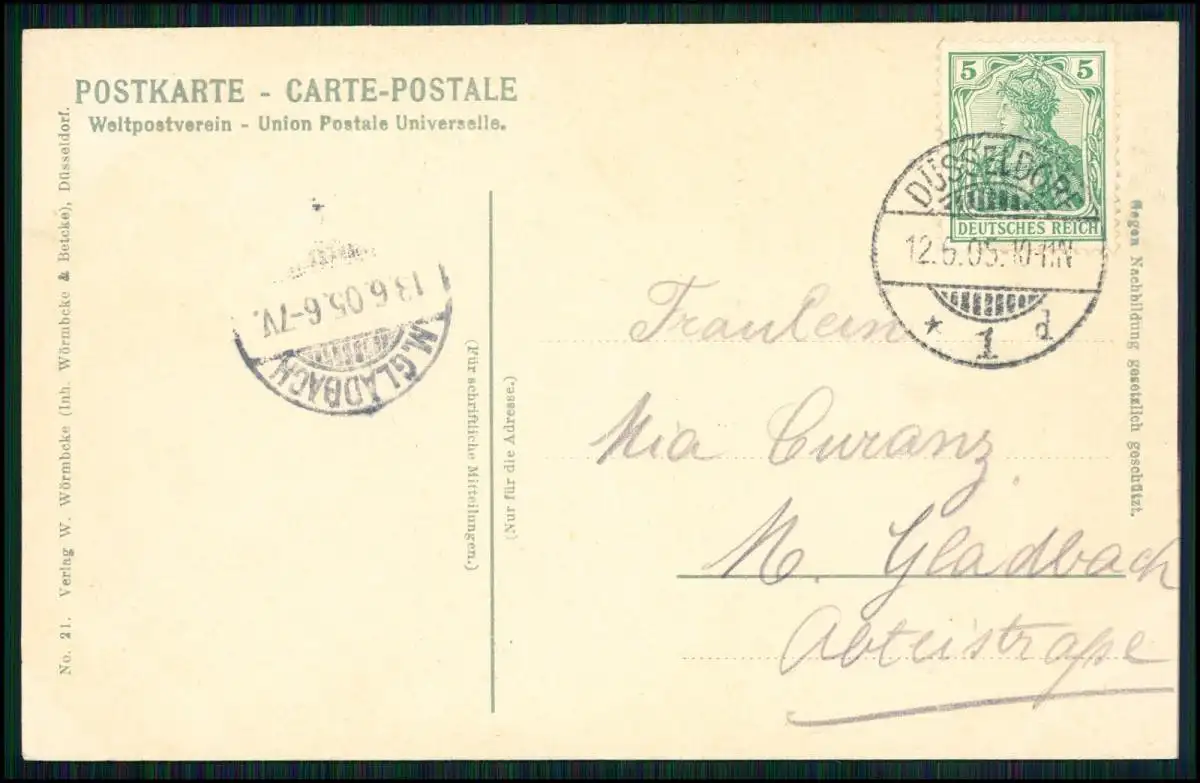 POSTKARTE - CARTE-POSTALE
Weltpostverein - Union Postale Universelle.
5 5
DEUTSCHES REICH
DÜSSELDORF
12.6.05.10-11N
* 1 d
13.6.05.6-7V.
M. GLADBACH
No. 21. Verlag W. Wörmbcke (Inh. Wörmbcke & Betcke), Düsseldorf.
(Für schriftliche Mitteilungen.)
(Nur für die Adresse.)
Gegen Nachbildung gesetzlich geschützt.
Fräulein
Mia Curanz
M. Gladbach
Abteistraße